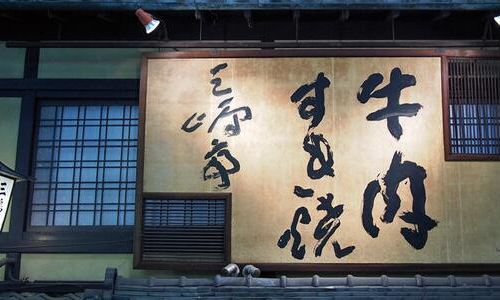 牛肉
すき焼
三嶋亭
三